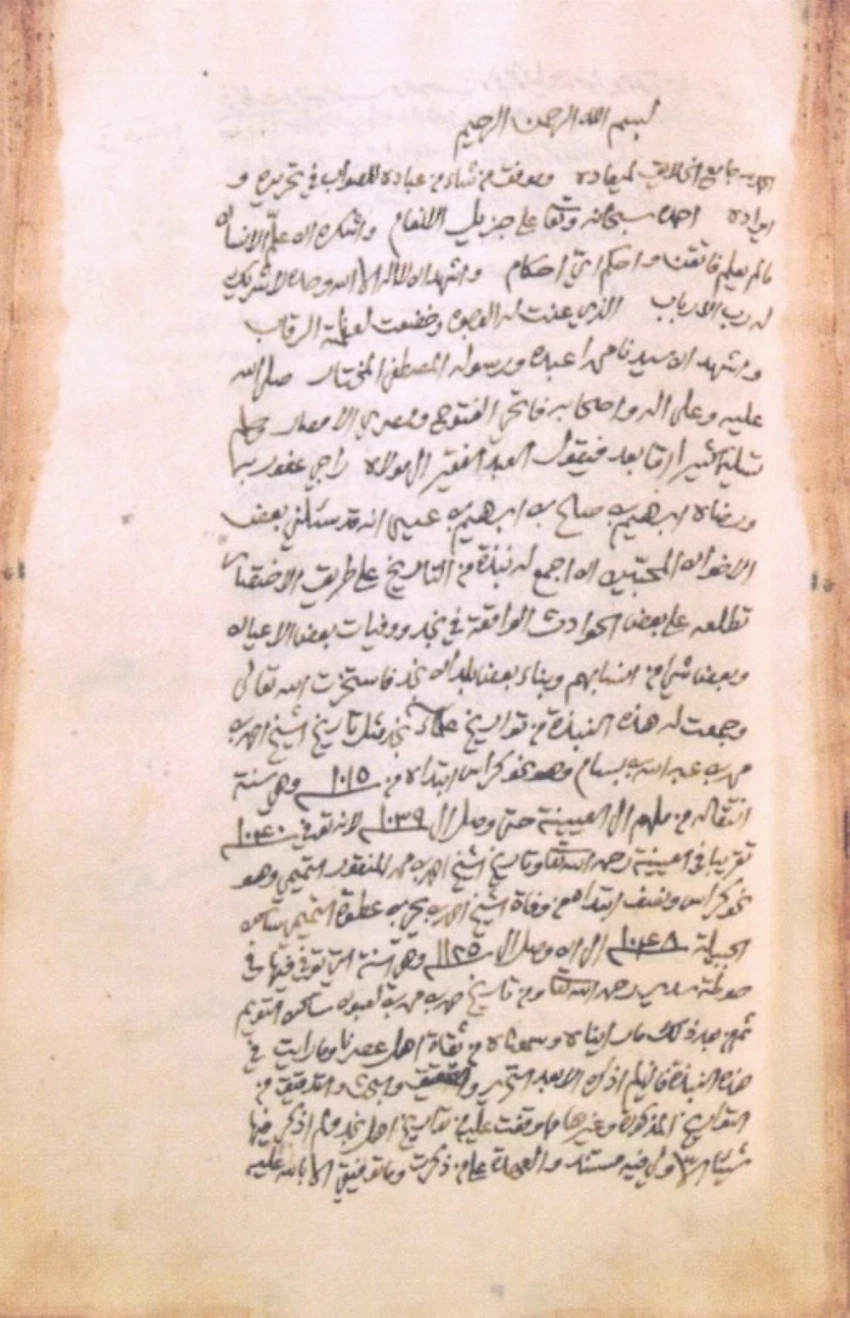 بسم الله الرحمن الرحيم
الحمد لله جامع الخلايق لميعاده وموفق من شاء من عباده للصواب في تحريره و
ايراده احمده سبحانه وتعالى على جزيل الانعام واشكره ان علم الانسان
مالم يعلم فاتقن واحكم اي احكام واشهد ان لا اله الا الله وحده لا شريك
له رب الارباب الذي عنت له الوجوه وخضعت لعظمته الرقاب
واشهد ان سيدنا محمدا عبده ورسوله المصطفى المختار صلى الله
عليه وعلى اله واصحابه فاتحي الفتوح وممصري الامصار وسلم
تسليما كثيرا اما بعد فيقول العبد الفقير الى مولاه راجي عفو ربه
ورضاه ابرهيم بن صالح بن ابرهيم بن عيسى انه قد سئلني بعض
الاخوان المحبين ان اجمع له نبذة من التاريخ على طريق الاختصار
تطلعه على بعض الحوادث الواقعة في نجد ووفيات بعض الاعيان
وبعض شي من انسابهم وبناء بعض بلدان نجد فاستخرت الله تعالى
وجمعت له هذه النبذة من تواريخ علماء نجد مثل تاريخ الشيخ احمد بن
محمد بن عبد الله بن بسام وهو نحو كراس ابتداه من ١٠١٥ وهي سنة
انتقاله من ملهم الى العيينة حتى وصل الى ١٠٣٩ لانه توفي ١٠٤٠
تقريبا في العيينة رحمه الله تعالى وتاريخ الشيخ احمد بن محمد المنقور التميمي وهو
نحو كراس ونصف ابتداه من وفاة الشيخ احمد بن يحيى بن عطوة التميمي ساكن
الجبيلة ١٠٤٨ الى ان وصل الى ١١٢٥ وهي السنة التي توفي فيها في
حوطة سدير رحمه الله تعالى ومن تاريخ حمد بن محمد بن لعبون ساكن التويم
ثم من بعد ذلك ما رايناه وسمعناه من ثقاة اهل عصرنا وما رايت في
هذه النبذة فاني لم اذكره الا بعد التحري والتحقيق والبحث والتدقيق من
التواريخ المذكورة وغيرها مما وقفت عليه من تواريخ اهل نجد ولم اذكر فيها
شيئا الا ولي فيه مستند والعهدة على من ذكرت وما توفيقي الا بالله عليه